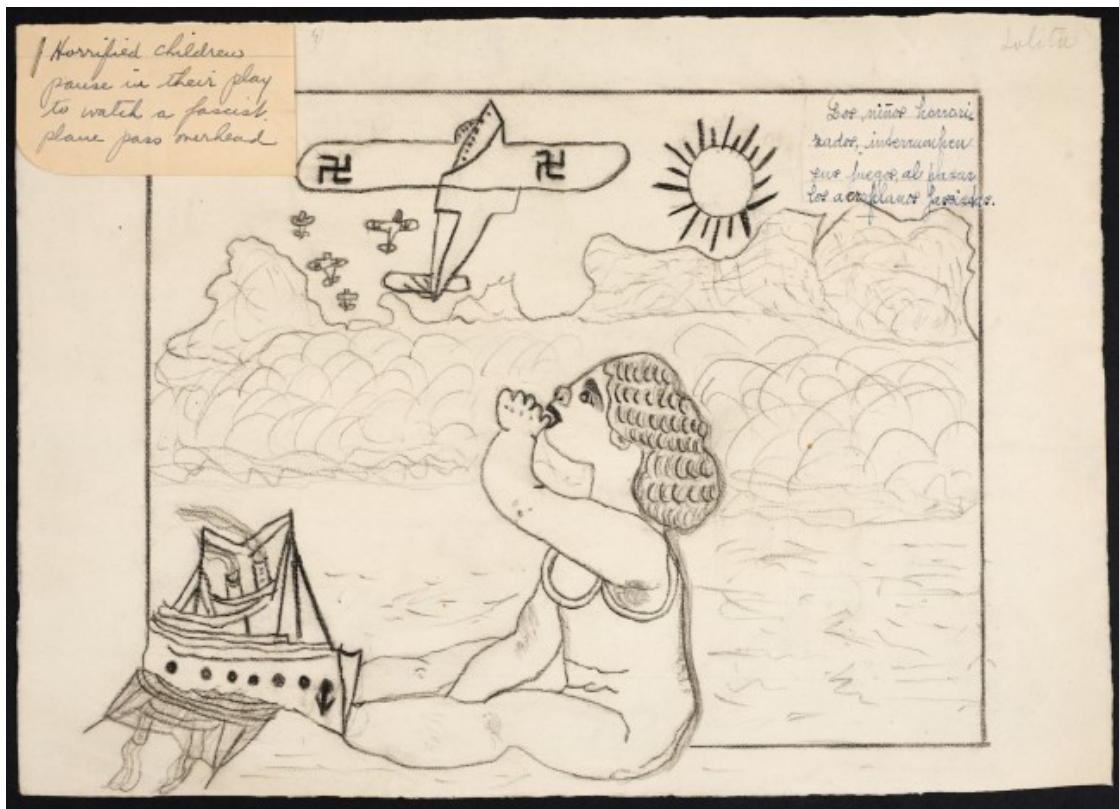 Horrified children
pause in their play
to watch a fascist
plane pass overhead
Lolita
Los niños horrori-
zados, interrumpen
sus juegos, al pasar
los aeroplanos fascistas.